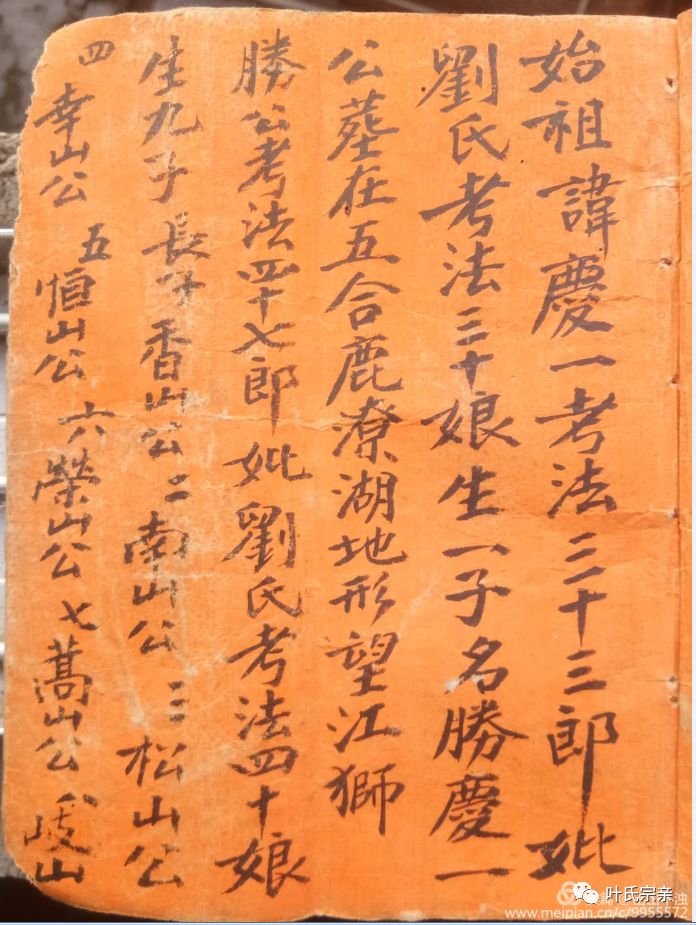 始祖諱慶一考法三十三郎妣
劉氏考法三十娘生一子名勝慶一
公塟在五合鹿寮湖地形望江獅
勝公考法四十七郎妣劉氏考法四十娘
生九子長子香山公二南山公三松山公
四幸山公五恒山公六榮山公七蒿山公八歧山
叶氏宗亲
www.meipian.cn/c/9955572